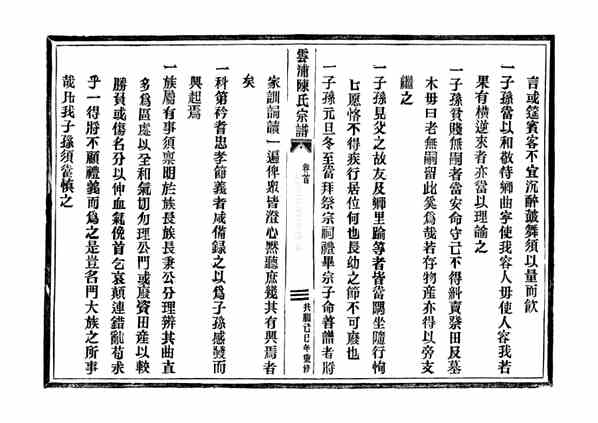 言或筵賓客不宜沉醉皷舞須以量而飲
一子孫當以和敬待鄉曲寧使我容人毋使人容我若
果有橫逆來者亦當以理諭之
一子孫貧賤無嗣者當安命守己不得斜賣祭田及墓
木毋曰者無嗣留此奚爲哉若存物產亦得以旁支
繼之
一子孫見父之故友及鄉里踰等者皆當隅坐隨行恂
恂愿慤不得疾行居位何也長幼之節不可廢也
一子孫元旦冬至當拜祭宗祠禮畢宗子命善讀者將
雲浦陳氏宗譜
卷首
共和己巳年重修
家訓誦讀一遍俾眾皆澄心默聽庶幾其有興焉者
矣
一科第衿耆忠孝節義者咸備錄之以爲子孫感發而
興起焉
一族屬有事須稟明於族長族長秉公分理辨其曲直
多爲區處以全和氣切勿理公門或廢資田產以較
勝負或傷名分以伸血氣俛首乞哀顛連錯亂苟求
乎一得將不顧禮義而爲之是豈名門大族之所事
哉凡我子孫須當慎之